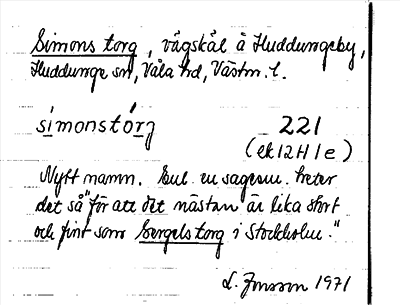 Simons torg, vägskäl å Huddungeby,
Huddunge sn, Våla hd, Västm. l.
simonstórg 221
(ek12H1e)
Nytt namn. Enl. en sagesm. heter
det så "för att det nästan är lika stort
och fint som Sergels torg i Stockholm."
L. Jonsson 1971